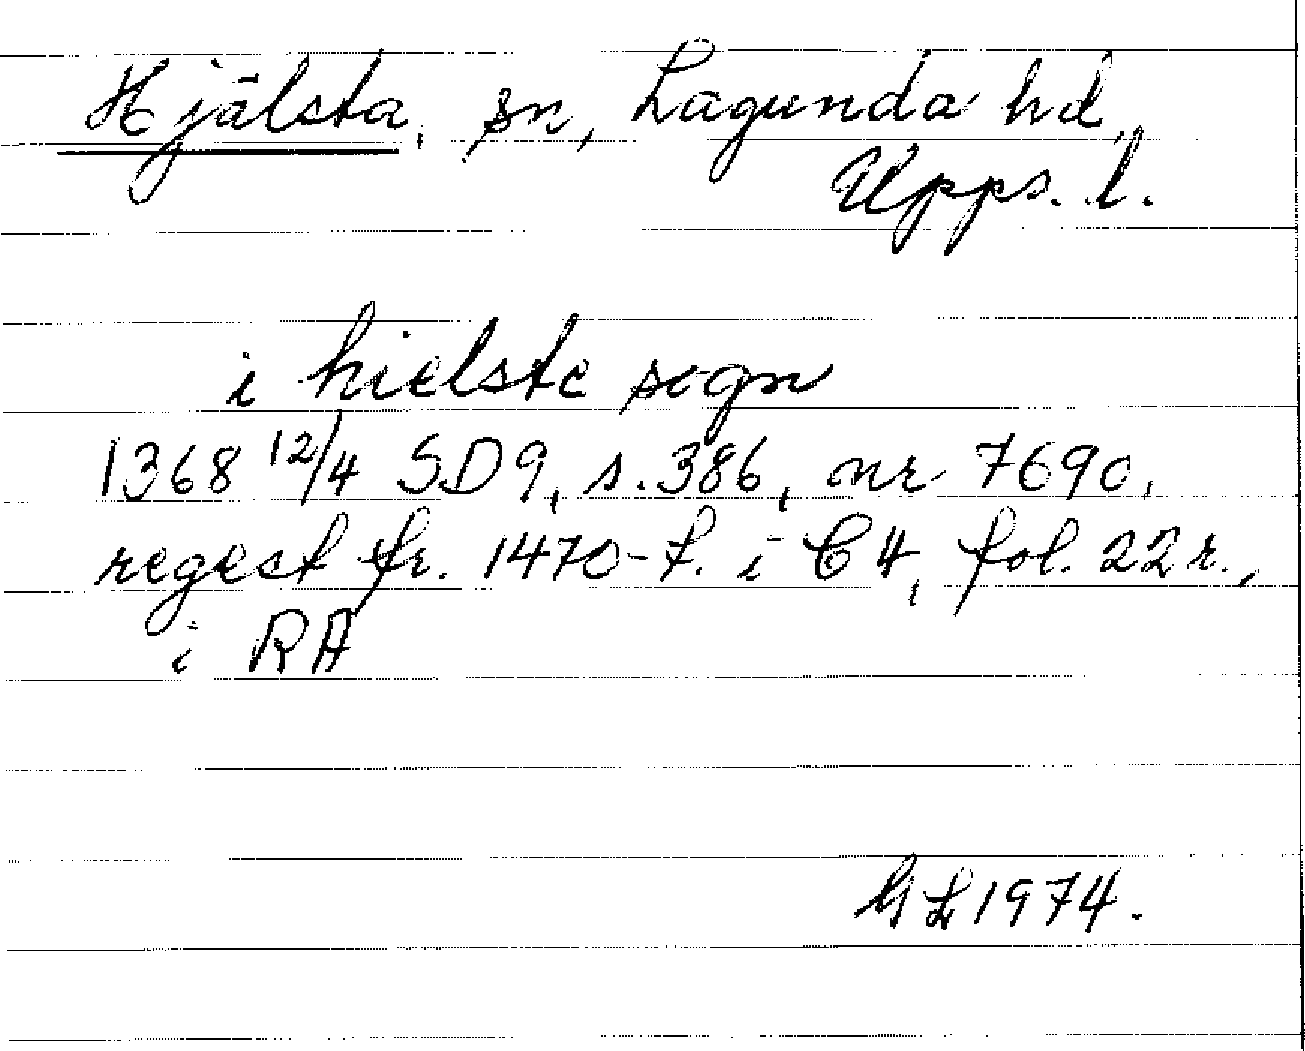 Hjälsta, sn, Lagunda hd,
Upps. l.
i hielste sogn
1368 12/4 SD9, s.386, nr 7690,
regest fr. 1470-t. i C4, fol. 22r.,
i RA
GL 1974.